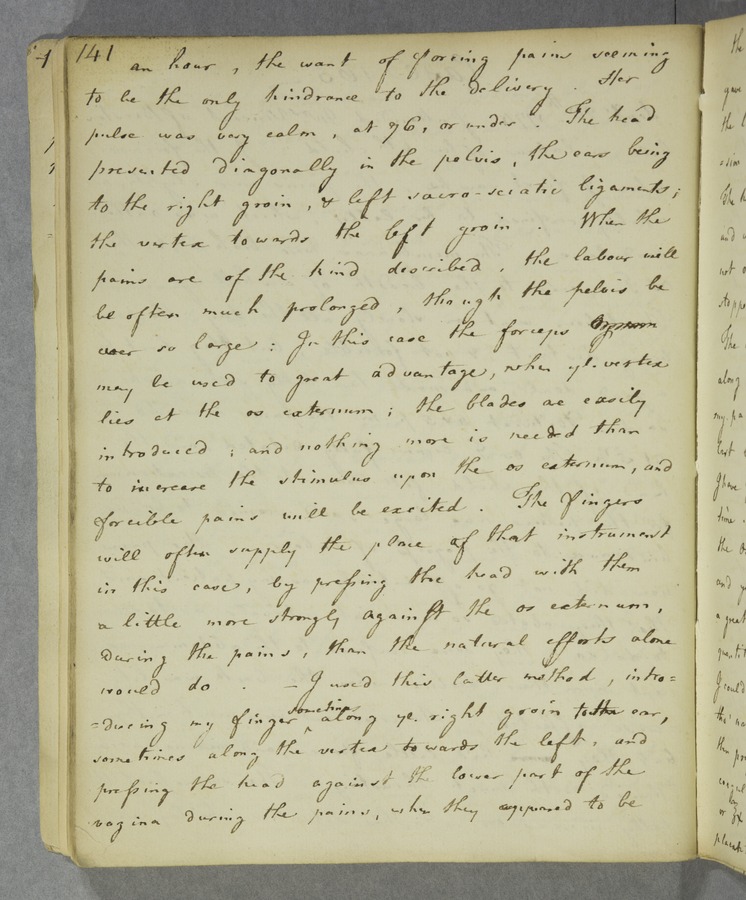 141
an hour, the want of forcing pains seeming
to be the only hindrance to the delivery. Her
pulse was very calm, at 96, or under. The head
presented diagonally in the pelvis, the ears being
to the right groin, & left sacro-sciatic ligaments;
the vertex towards the left groin. When the
pains are of the kind described, the labour will
be often much prolonged, though the pelvis be
ever so large: In this case the forceps
may be used to great advantage, when ye. vertex
lies at the os externum; the blades are easily
introduced; and nothing more is needed than
to increase the stimulus upon the os externum, and
forcible pains will be excited. The fingers
will often supply the place of that instrument
in this case, by pressing the head with them
a little more strongly against the os externum,
during the pains, than the natural efforts alone
would do. — I used this latter method, intro=
=ducing my finger sometimes along ye. right groin to the ear,
sometimes along the vertex towards the left, and
pressing the head against the lower part of the
vagina during the pains, when they appeared to be